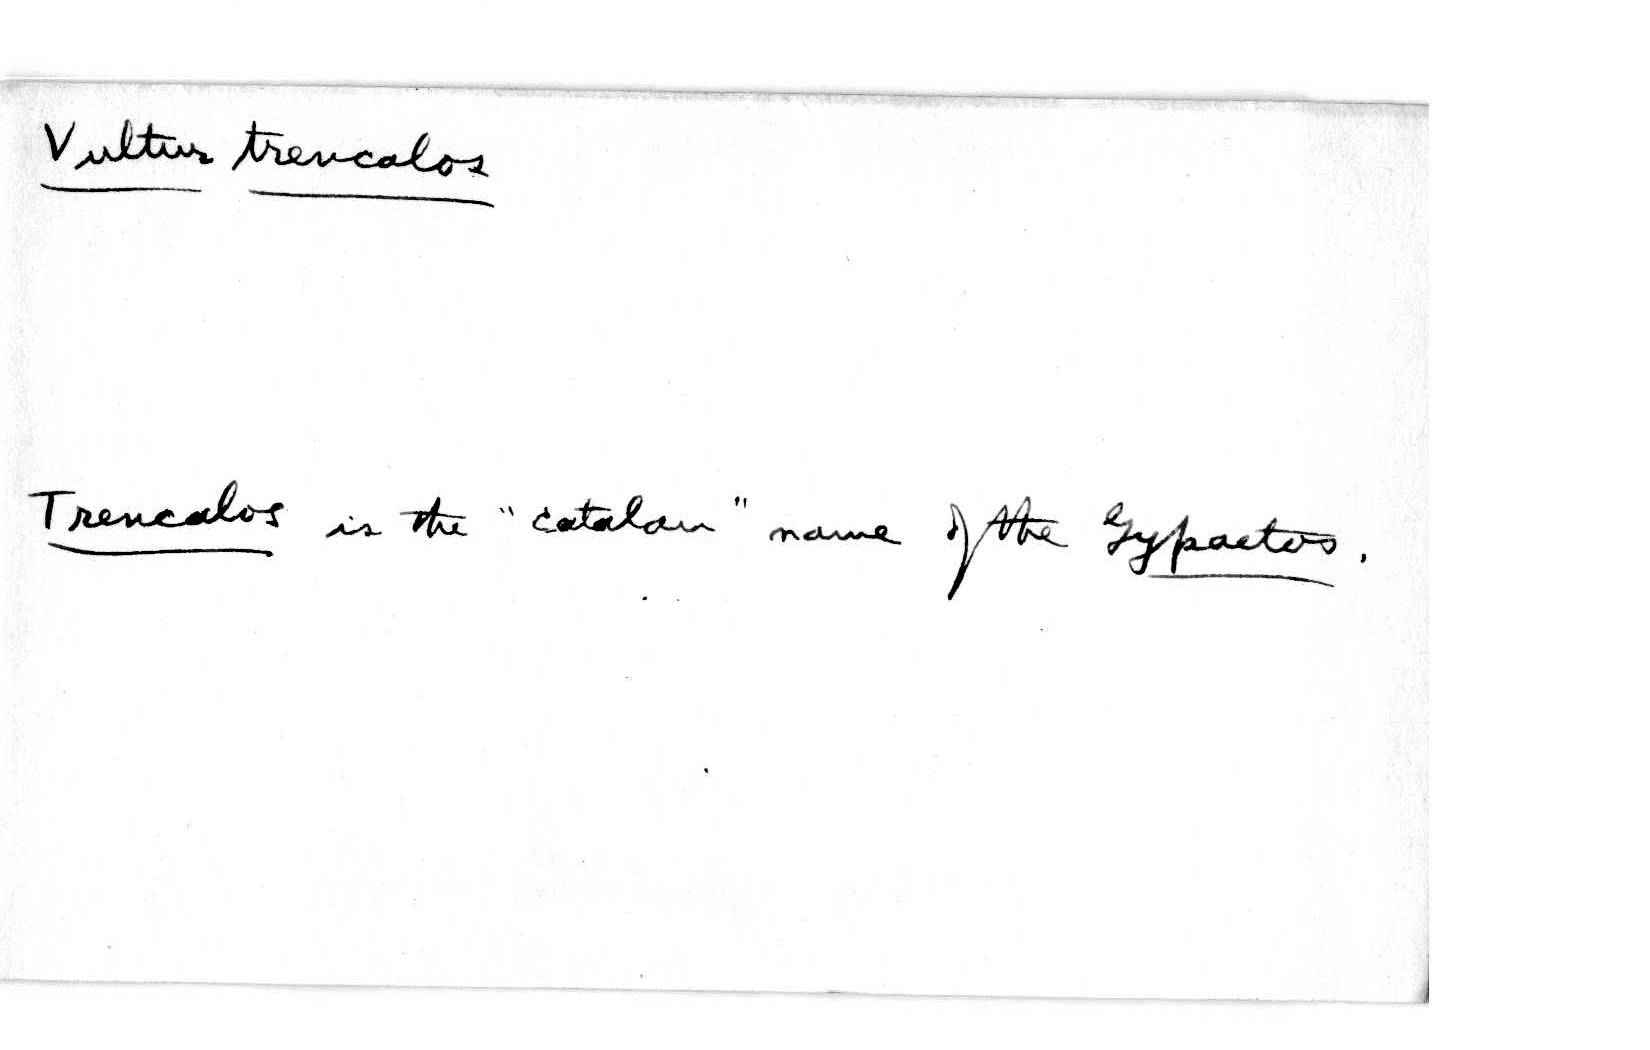 Vultur trencalos
Trencalos is the "catalan" name of the Gypaetus.